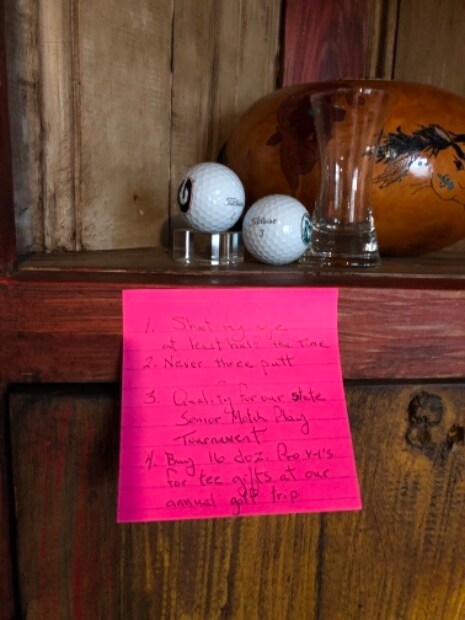 Titleist
Titleist
3
1. Shoot my age
at least half the time
2. Never three putt
3. Qualify for our state
Senior Match Play
Tournament
4. Buy 16 doz. Pro V-1's
for tee gifts at our
annual golf trip